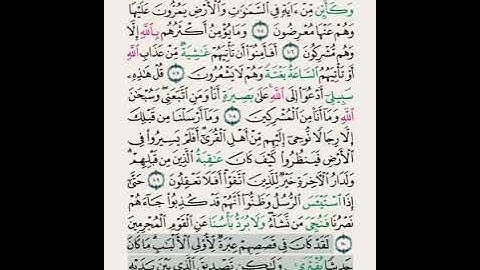 وَكَأَيِّن مِّنْ ءَايَةٍ فِى ٱلسَّمَٰوَٰتِ وَٱلْأَرْضِ يَمُرُّونَ عَلَيْهَا
وَهُمْ عَنْهَا مُعْرِضُونَ ١٠٥ وَمَا يُؤْمِنُ أَكْثَرُهُم بِٱللَّهِ إِلَّا
وَهُم مُّشْرِكُونَ ١٠٦ أَفَأَمِنُوٓا۟ أَن تَأْتِيَهُمْ غَٰشِيَةٌ مِّنْ عَذَابِ ٱللَّهِ
أَوْ تَأْتِيَهُمُ ٱلسَّاعَةُ بَغْتَةً وَهُمْ لَا يَشْعُرُونَ ١٠٧ قُلْ هَٰذِهِۦ
سَبِيلِىٓ أَدْعُوٓا۟ إِلَى ٱللَّهِ عَلَىٰ بَصِيرَةٍ أَنَا۠ وَمَنِ ٱتَّبَعَنِى وَسُبْحَٰنَ
ٱللَّهِ وَمَآ أَنَا۠ مِنَ ٱلْمُشْرِكِينَ ١٠٨ وَمَآ أَرْسَلْنَا مِن قَبْلِكَ
إِلَّا رِجَالًا نُّوحِىٓ إِلَيْهِم مِّنْ أَهْلِ ٱلْقُرَىٰٓ أَفَلَمْ يَسِيرُوا۟ فِى
ٱلْأَرْضِ فَيَنظُرُوا۟ كَيْفَ كَانَ عَٰقِبَةُ ٱلَّذِينَ مِن قَبْلِهِمْ
وَلَدَارُ ٱلْءَاخِرَةِ خَيْرٌ لِّلَّذِينَ ٱتَّقَوْا۟ أَفَلَا تَعْقِلُونَ ١٠٩ حَتَّىٰٓ
إِذَا ٱسْتَيْـَٔسَ ٱلرُّسُلُ وَظَنُّوٓا۟ أَنَّهُمْ قَدْ كُذِبُوا۟ جَآءَهُمْ
نَصْرُنَا فَنُجِّىَ مَن نَّشَآءُ وَلَا يُرَدُّ بَأْسُنَا عَنِ ٱلْقَوْمِ ٱلْمُجْرِمِينَ
١١٠ لَقَدْ كَانَ فِى قَصَصِهِمْ عِبْرَةٌ لِّأُو۟لِى ٱلْأَلْبَٰبِ مَا كَانَ
حَدِيثًا يُفْتَرَىٰ وَلَٰكِن تَصْدِيقَ ٱلَّذِى بَيْنَ يَدَيْهِ